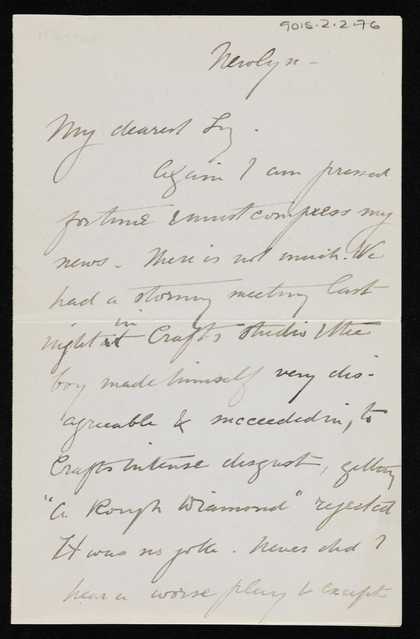 9015-2-2-76
Newlyn -
My dearest Liz.
Again I am pressed
for time & must compress my
news - There is not much. We
had a stormy meeting last
night in Crafts studio & the
boy made himself very dis-
agreeable & succeeded in, to
Crafts intense disgust, getting
"A Rough Diamond" rejected
It was no joke. Never did I
hear a worse play & except